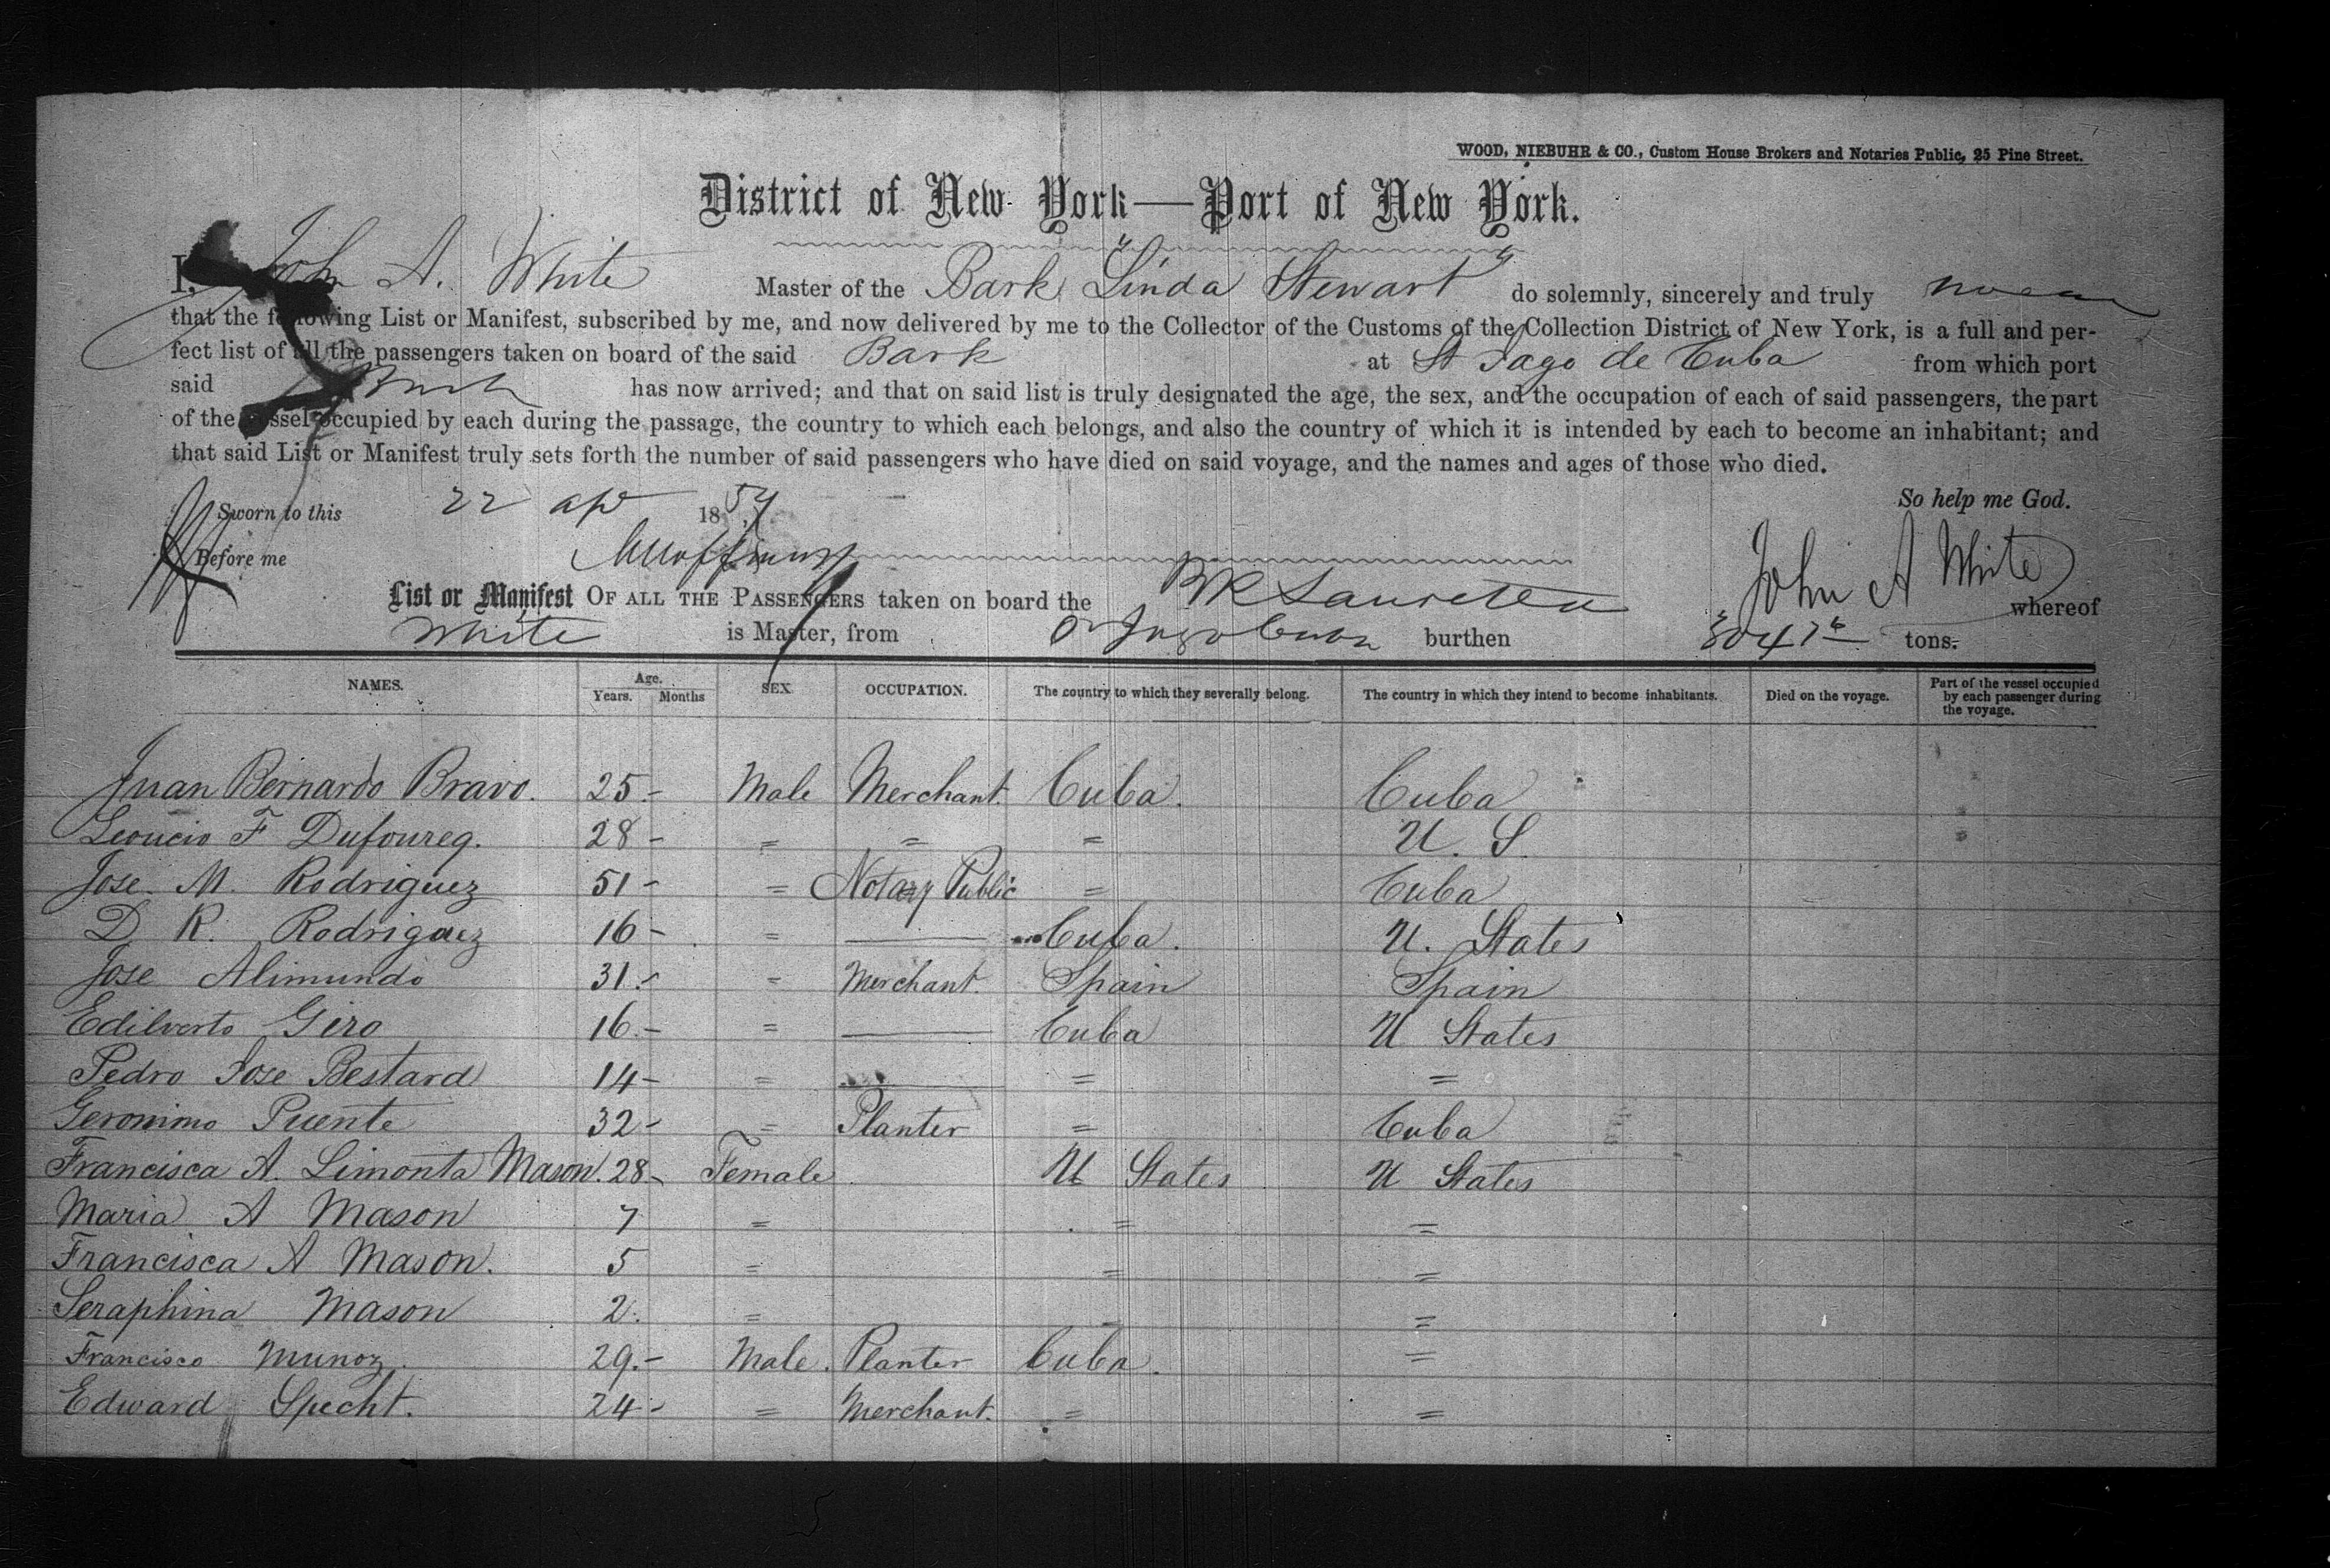 WOOD, NIEBUHR & CO., Custom House Brokers and Notaries Public, 25 Pine Street.
District of New York—Port of New York.
I, John A. White Master of the Bark "Linda Stewart" do solemnly, sincerely and truly
that the following List or Manifest, subscribed by me, and now delivered by me to the Collector of the Customs of the Collection District of New York, is a full and per-
fect list of all the passengers taken on board of the said Bark at St Jago de Cuba from which port
said has now arrived; and that on said list is truly designated the age, the sex, and the occupation of each of said passengers, the part
of the vessel occupied by each during the passage, the country to which each belongs, and also the country of which it is intended by each to become an inhabitant; and
that said List or Manifest truly sets forth the number of said passengers who have died on said voyage, and the names and ages of those who died.
So help me God.
Sworn to this 22 ap 18
Before me John A White
List or Manifest OF ALL THE PASSENGERS taken on board the whereof
White is Master, from burthen tons.
NAMES. Age. Years. Months SEX. OCCUPATION. The country to which they severally belong. The country in which they intend to become inhabitants. Died on the voyage. Part of the vessel occupied by each passenger during the voyage.
Juan Bernardo Bravo. 25.- Male Merchant. Cuba. Cuba
Leoncio F Dufoureg. 28- = = = U. S.
Jose. M. Rodriguez 51- = Notary Public = Cuba
D R. Rodriguez 16- = — Cuba. U. States
Jose Alimundo 31.- = Merchant. Spain Spain
Edilverto Giro 16.- = — Cuba U States
Pedro Jose Bestard 14- = — = =
Geronimo Puente 32- = Planter = Cuba
Francisca A. Limonta Mason. 28- Female U States U States
Maria A Mason 7 = = =
Francisca A Mason. 5 = = =
Seraphina Mason 2. = = =
Francisco Munoz. 29.- Male. Planter Cuba. =
Edward Specht. 24- = Merchant. = =